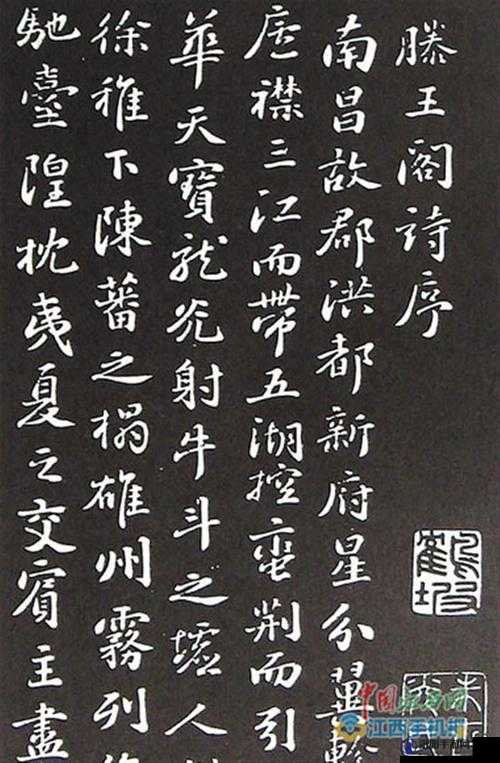 滕王阁詩序
南昌故郡洪都新府星分翼軫
廬襟三江而帶五湖控蛮荆而引
華天寶龍光射牛斗之墟人
徐稚下陳蕃之榻雄州霧列
馳臺隍枕夷夏之交賓主盡
中国江西网
江西手机报